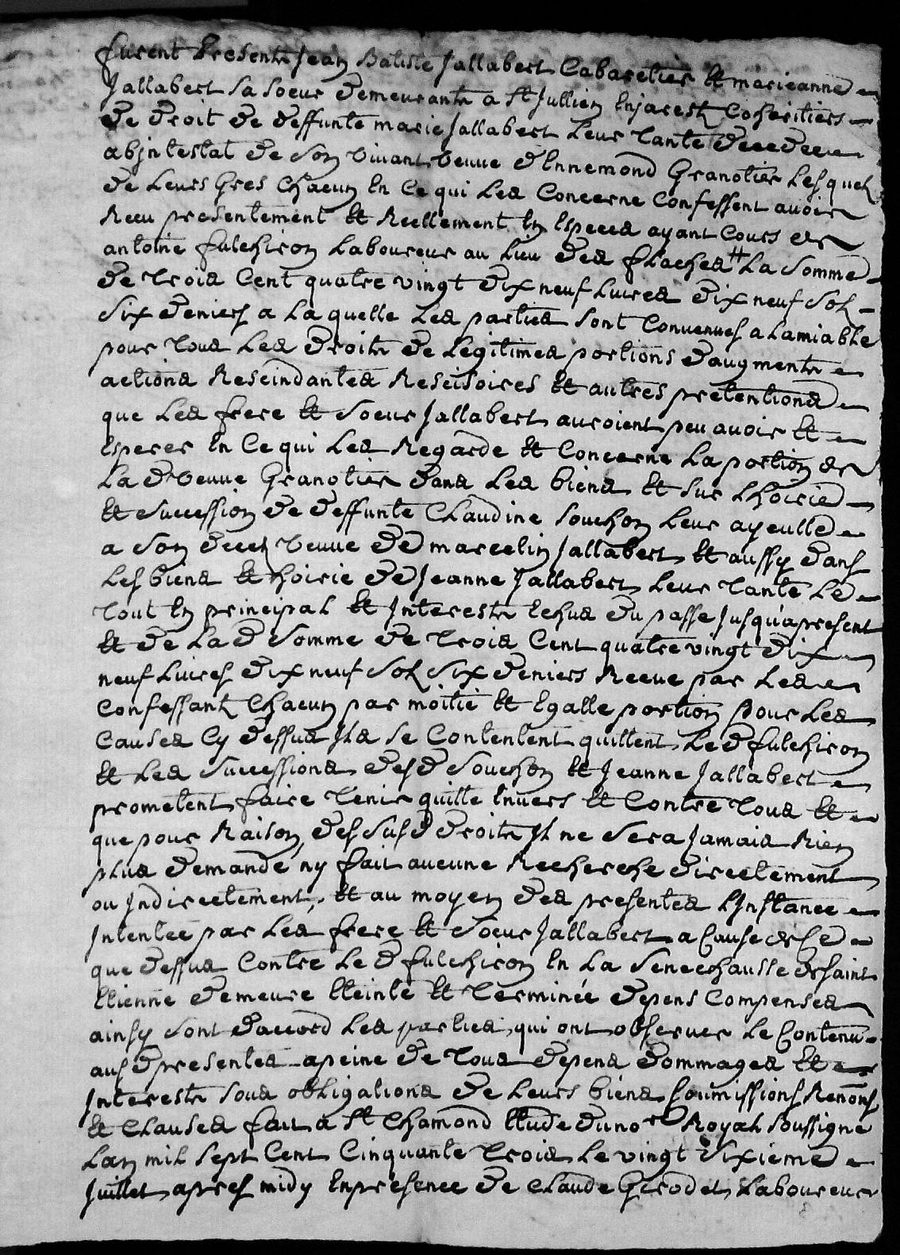 furent Presentz Jean Batiste Jallabert Cabaretier et marieanne
Jallabert sa soeur demeurantz a St Jullien Enjarest Coheritiers
de droit de deffunte marie Jallabert Leur Tante decedee
abjntestat de Son vivant veuve d'Ennemond Granotier Lesquelz
de Leurs Gres Chacun En Ce qui Les Concerne Confessent avoir
Receu presentement et Reellement En Especes ayant Cours de
antoine fulchiron Laboureur au Lieu des flaches La Somme
de Trois Cent quatre vingt dix neuf Livres dix neuf Solz
Six deniers a La quelle Les parties Sont Convenues a Lamiable
pour Tous Les droitz de Legitimes portions d'augmentz
actions Rescindantes Rescisoires et autres pretentions
que Les frere et Soeur Jallabert auroient peu avoir et
Esperer En Ce qui Les Regarde et Concerne La portion de
La d veuve Granotier dans Les biens et Sur Lhoirie
et Succession de deffunte Claudine Souchon Leur ayeulle
a Son deces veuve de marcelin Jallabert et aussy dans
Les biens et hoirie de Jeanne Jallabert Leur Tante Le
Tout En principal et Interestz Echus du passe Jusqu'apresent
et de La d Somme de Trois Cent quatre vingt dix
neuf Livres dix neuf Solz Six deniers Receue par Les
Confessantz Chacun par moitie et Egalle portion pour Les
Causes Cy dessus Jls se Contentent quittent Le d fulchiron
et Les Successions desd Souchon et Jeanne Jallabert
prometent faire Tenir quitte Envers et Contre Tous et
que pour Raison des Susd droitz Jl ne Sera Jamais Rien
plus demandé ny fait aucune Recherche directement
ou Jndirectement, et au moyen des presentes L'Jnstance
Jntentée par Les frere et Soeur Jallabert a Cause de Ce
que dessus Contre Le d fulchiron En La Senechaussé de Saint
Etienne demeure Eteinte et Terminée depens Compenses
ainsy Sont daccord Les parties, qui ont observer Le Contenu
aus d presentes apeine de Tous depens dommages et
Jnterestz Sous obligations de Leurs biens Soumissions Renons
et Clauses fait a St Chamond Etude du nore Royal Soussigne
Lan mil Sept Cent Cinquante Trois Le vingt Sixieme
Juillet apres midy Enpresence de Claude Girodet Laboureur